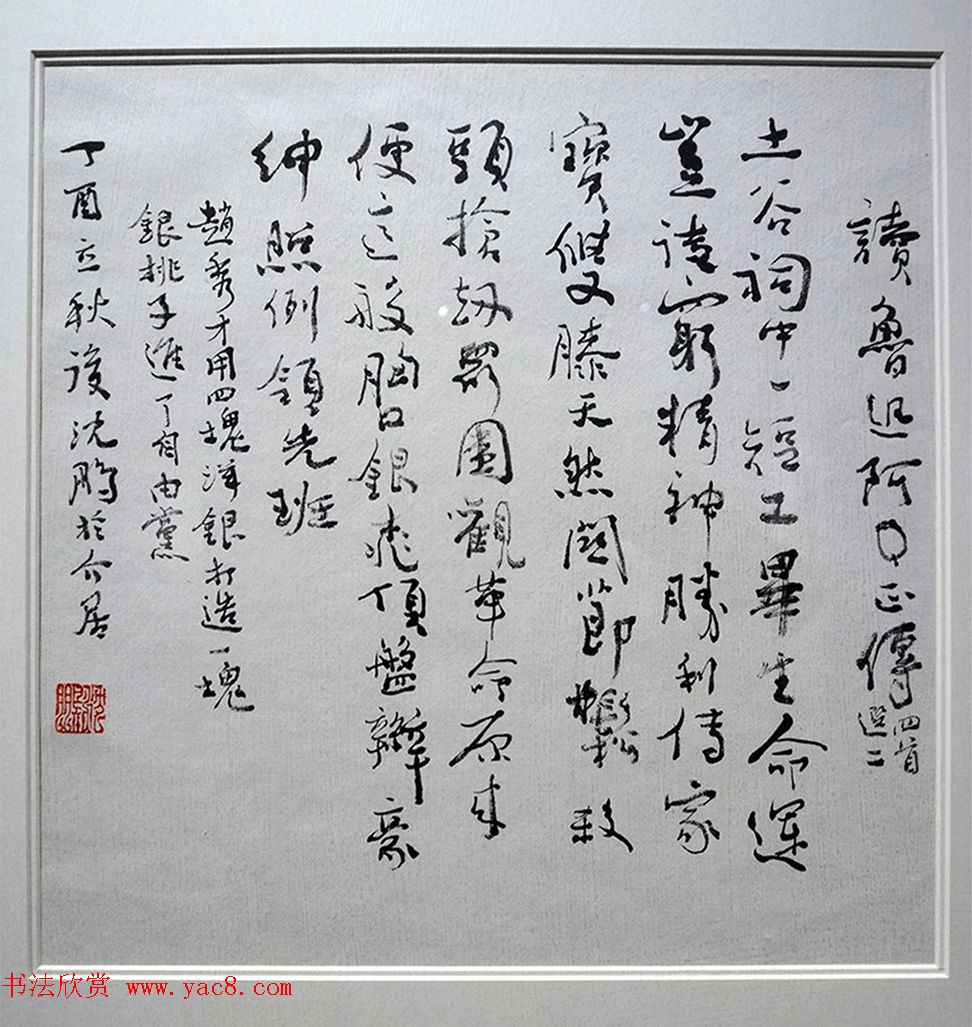 讀魯迅阿Q正傳
四首
選二
土谷祠中一短工畢生命運
豈諱窮精神勝利傳家
寶雙膝天然關節鬆殺
頭搶劫眾圍觀革命原來
便這般胸口銀桃頂盤辮豪
紳照例領先班
趙秀才用四塊洋銀打造一塊
銀桃子進了自由黨
丁酉立秋後沈鵬於介居
书法欣赏 www.yac8.com